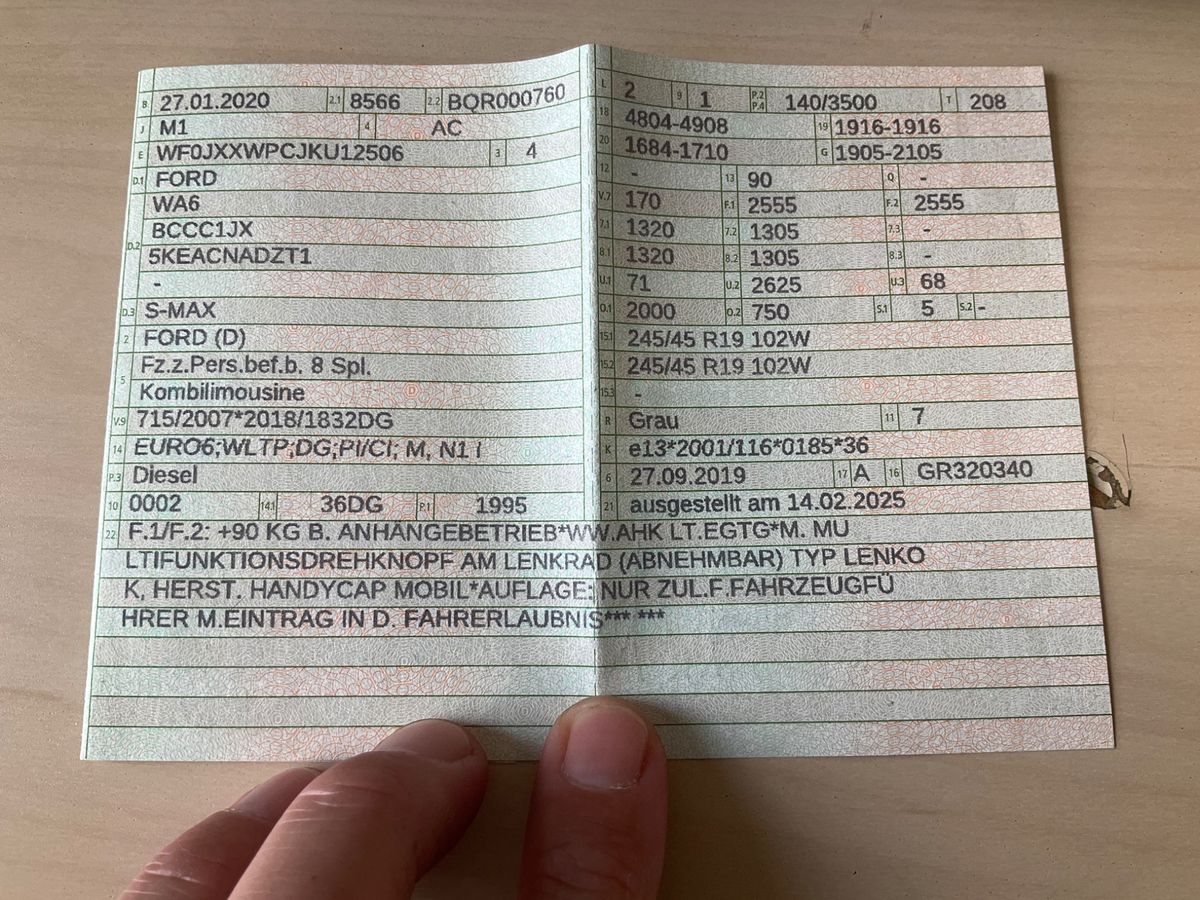 B 27.01.2020 2.1 8566 2.2 BQR000760
J M1 4 AC
E WF0JXXWPCJKU12506 3 4
D.1 FORD
WA6
D.2 BCCC1JX
5KEACNADZT1
-
D.3 S-MAX
2 FORD (D)
5 Fz.z.Pers.bef.b. 8 Spl.
Kombilimousine
V.9 715/2007*2018/1832DG
14 EURO6;WLTP;DG;PI/CI; M, N1 i
P.3 Diesel
10 0002 14.1 36DG P.1 1995
L 2 9 1 P.2 P.4 140/3500 T 208
18 4804-4908 19 1916-1916
20 1684-1710 G 1905-2105
12 - 13 90 Q -
V.7 170 F.1 2555 F.2 2555
7.1 1320 7.2 1305 7.3 -
8.1 1320 8.2 1305 8.3 -
U.1 71 U.2 2625 U.3 68
O.1 2000 O.2 750 S.1 5 S.2 -
15.1 245/45 R19 102W
15.2 245/45 R19 102W
15.3 -
R Grau 11 7
K e13*2001/116*0185*36
6 27.09.2019 17 A 16 GR320340
21 ausgestellt am 14.02.2025
22 F.1/F.2: +90 KG B. ANHÄNGEBETRIEB*WW.AHK LT.EGTG*M. MU
LTIFUNKTIONSDREHKNOPF AM LENKRAD (ABNEHMBAR) TYP LENKO
K, HERST. HANDYCAP MOBIL*AUFLAGE: NUR ZUL.F.FAHRZEUGFÜ
HRER M.EINTRAG IN D. FAHRERLAUBNIS*** ***